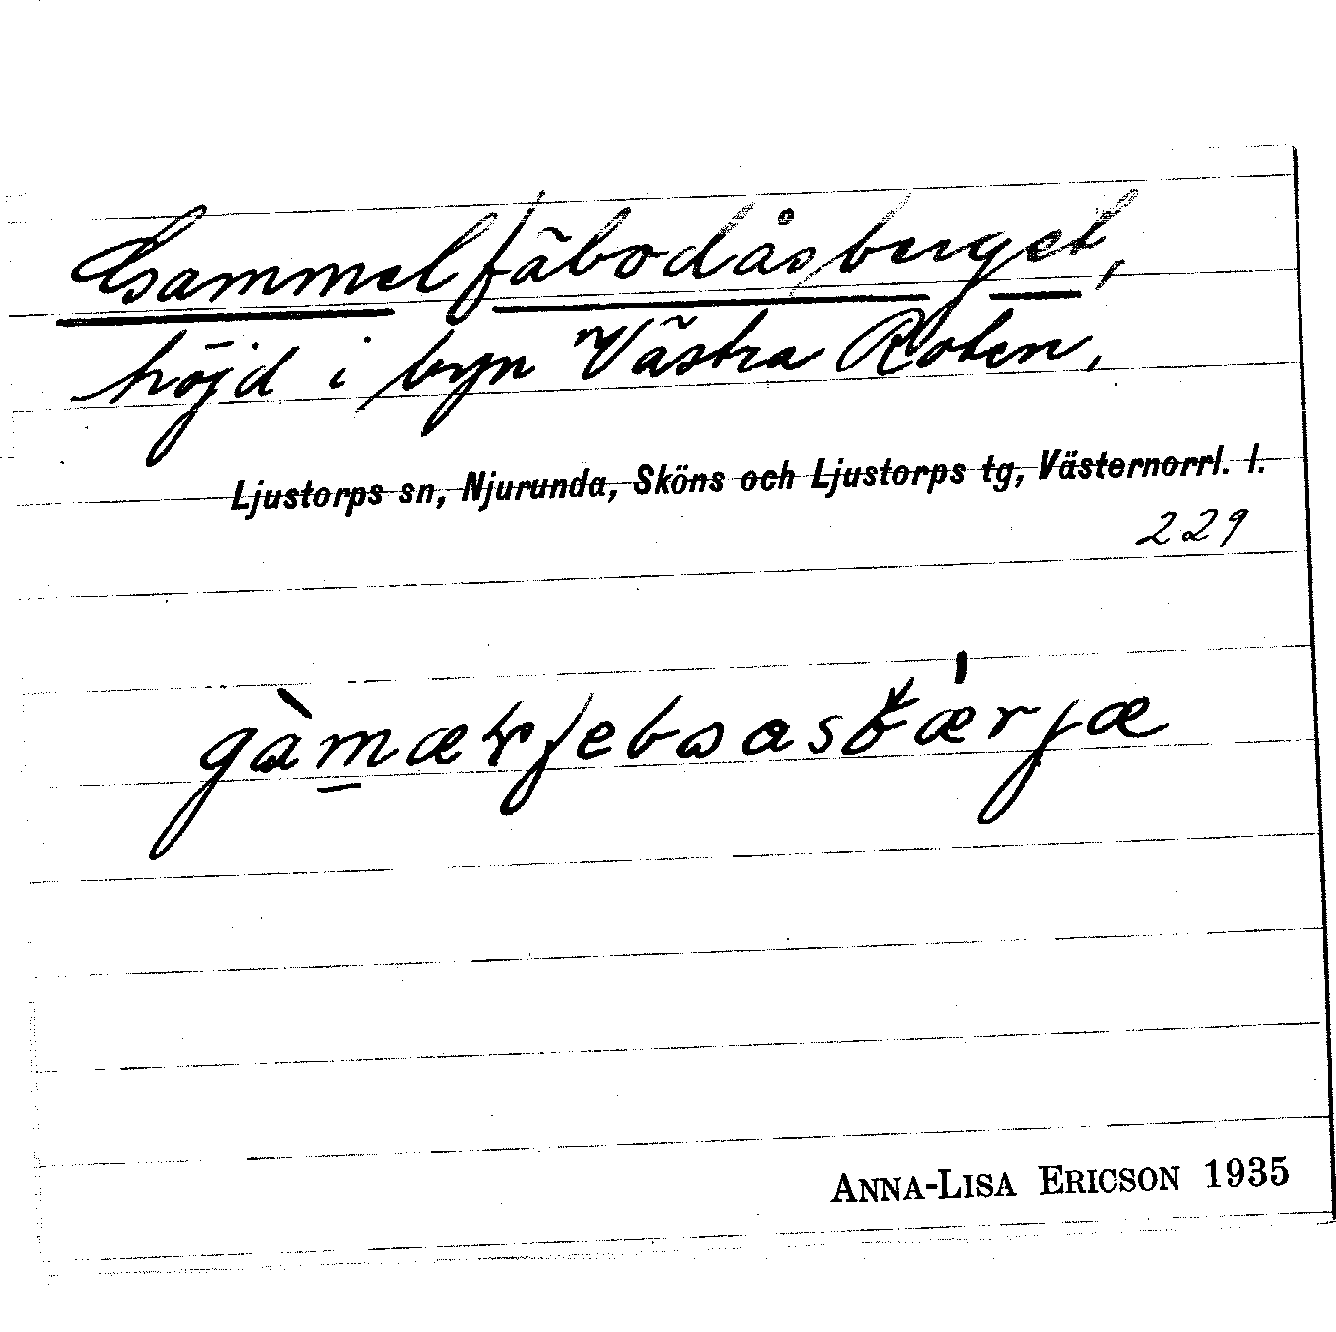 Gammelfäbodåsberget,
höjd i byn Västra Roten,
Ljustorps sn, Njurunda, Sköns och Ljustorps tg, Västernorrl. l.
229
ANNA-LISA ERICSON 1935